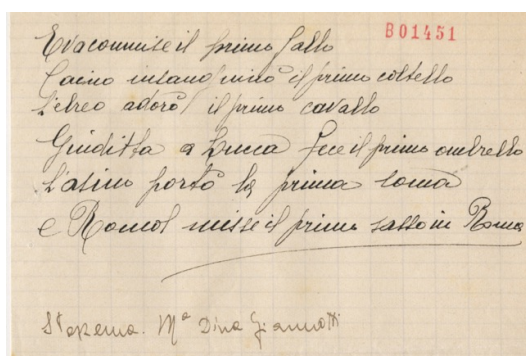 B01451
Eva commise il primo fallo
Caino insanguinò il primo coltello
L'ebreo adorò il primo cavallo
Giuditta a Lucca fece il primo ombrello
L'asino portò la prima soma
e Romol misse il primo sasso in Roma
Mª Dina Giannotti